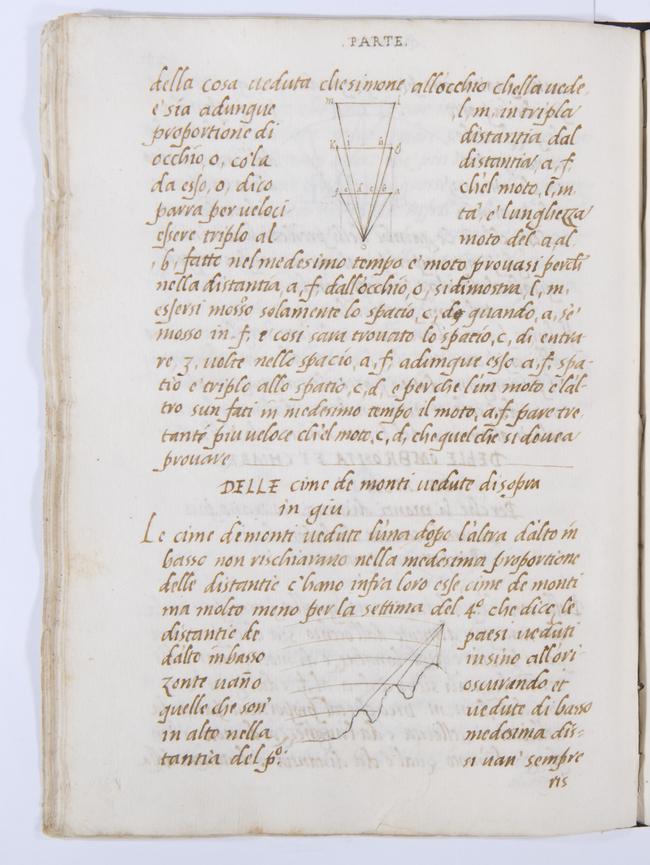 PARTE.
della cosa ueduta chesimone, all'occhio chella uede
e' sia adunque l, m, in tripla
proportione di distantia dal
occhio, o, co'la distantia, a, f,
da esso, o, dico ch'el moto, l, m,
parra per veloci ta, e' lunghezza
essere triplo al moto del, a, al
, b, fatte nel medesimo tempo e' moto prouasi perch
nella distantia, a, f, dall'occhio, o, si dimostra, l, m,
essersi mosso solamente lo spacio, c, d, quando, a, se'
mosso in f, e cosi sara trouato lo spacio, c, d, entra
re, 3, uolte nello spacio, a, f, adumque esso a, f, spa-
tio e' triplo allo spatio, c, d, e perche l'un moto e l'al-
tro sun fati in medesimo tempo il moto, a, f, pare tre
tante piu ueloce ch'el moto, c, d, che quel che si douea
prouare
DELLE cime de monti uedute di sopra
in giu
Le cime de monti uedute l'una dopo l'altra d'alto in
basso non rischiarano nella medesima proportione
delle distantie c'hano infra loro esse cime de monti
ma molto meno per la settima del 4.º che dice, le
distantie de paesi ueduti
dalto in basso insino all'ori
zonte uaño oscurando et
quelle che son' uedute di basso
in alto nella medesima dis=
tantia del pº: si uan' sempre
ris
m l
k i n b
f e d c a
o